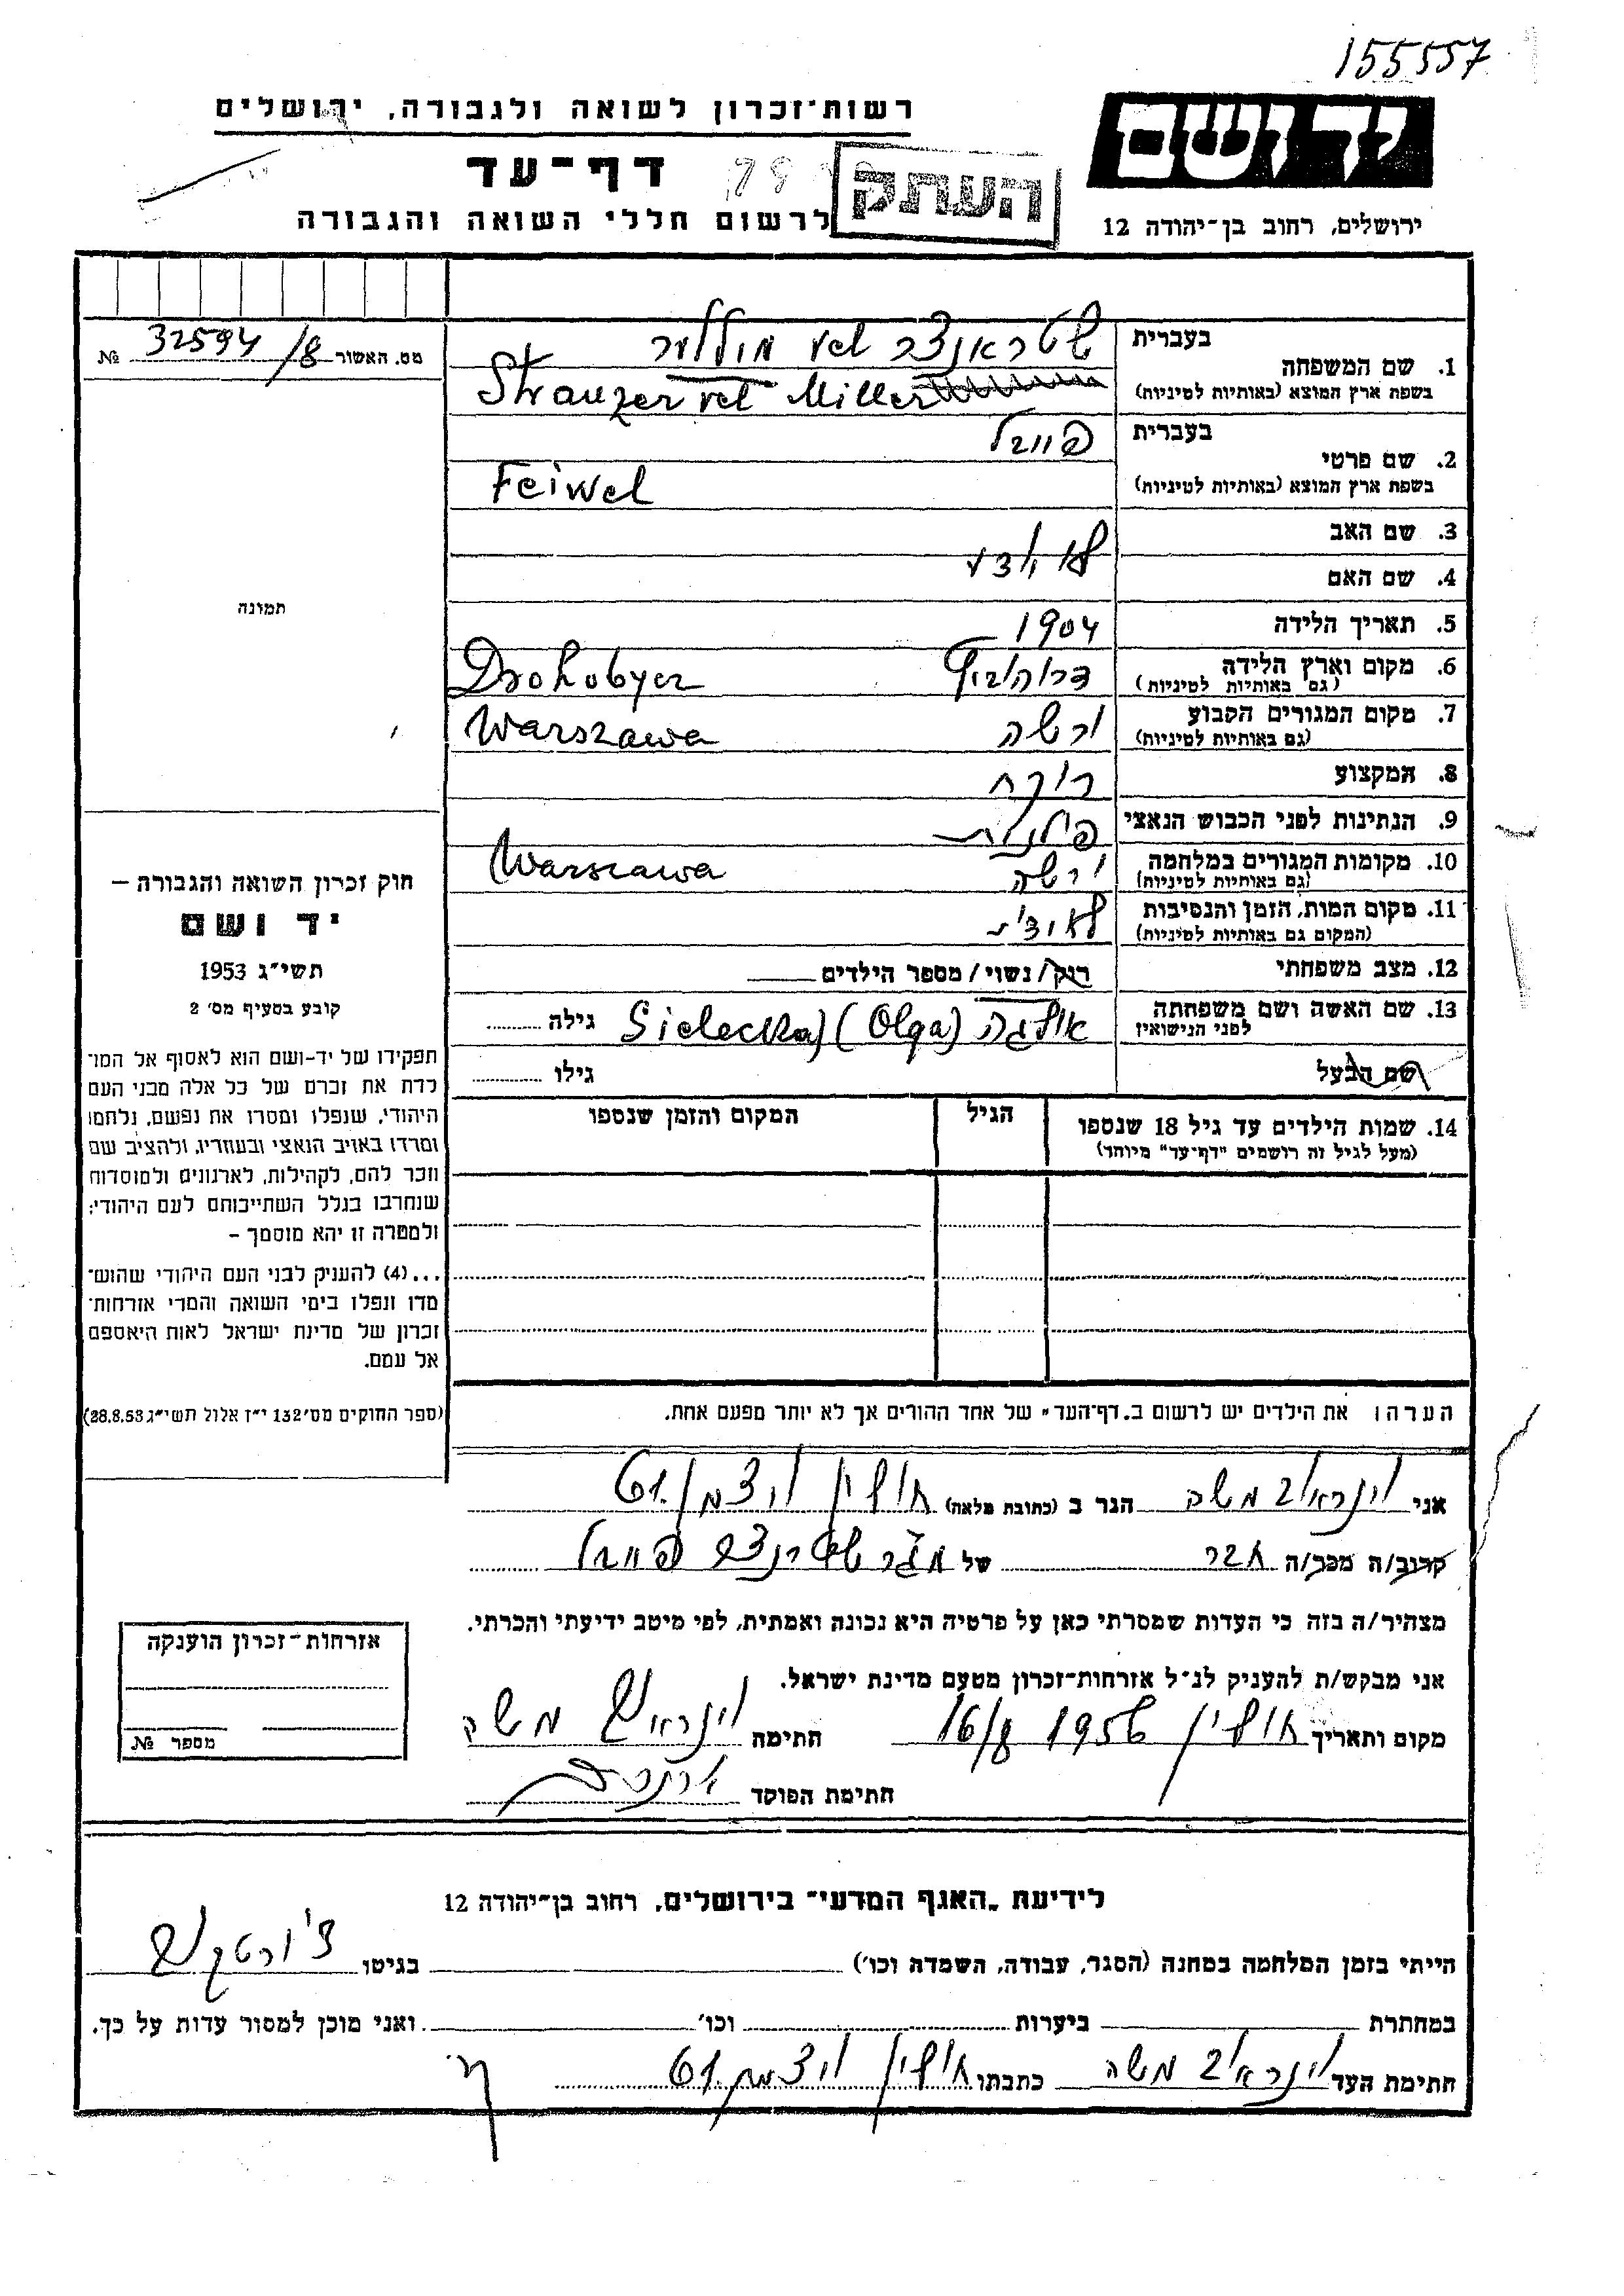 155557
יד ושם
ירושלים, רחוב בן־יהודה 12
רשות־זכרון לשואה ולגבורה, ירושלים
דף־עד
העתק
לרשום חללי השואה והגבורה
מס. האשור 32594/8 №
1. שם המשפחה בעברית שטראנצר vel מוללער
בשפת ארץ המוצא (באותיות לטיניות) Stranzer vel Miller
2. שם פרטי בעברית פייבל
בשפת ארץ המוצא (באותיות לטיניות) Feiwel
3. שם האב
4. שם האם
לא ידוע
5. תאריך הלידה 1904
6. מקום וארץ הלידה דרוהוביץ Drohobycz
(גם באותיות לטיניות)
7. מקום המגורים הקבוע ורשה Warszawa
(גם באותיות לטיניות)
8. המקצוע רוקח
9. הנתינות לפני הכבוש הנאצי פולנית
10. מקומות המגורים במלחמה ורשה Warszawa
(גם באותיות לטיניות)
11. מקום המות, הזמן והנסיבות
(המקום גם באותיות לטיניות)
12. מצב משפחתי רוק/נשוי/מספר הילדים
13. שם האשה ושם משפחתה אולגה (Olga) (Sielecka גילה
לפני הנישואין
שם הבעל גילו
14. שמות הילדים עד גיל 18 שנספו הגיל המקום והזמן שנספו
(מעל לגיל זה רושמים "דף־עד" מיוחד)
הערה: את הילדים יש לרשום ב„דף־העד" של אחד ההורים אך לא יותר מפעם אחת.
תמונה
חוק זכרון השואה והגבורה –
יד ושם
תשי"ג 1953
קובע בסעיף מס' 2
תפקידו של יד-ושם הוא לאסוף אל המו־
לדת את זכרם של כל אלה מבני העם
היהודי, שנפלו ומסרו את נפשם, נלחמו
ומרדו באויב הנאצי ובעוזריו, ולהציב שם
וזכר להם, לקהילות, לארגונים ולמוסדות
שנחרבו בגלל השתייכותם לעם היהודי;
ולמטרה זו יהא מוסמך –
...(4) להעניק לבני העם היהודי שהוש־
מדו ונפלו בימי השואה והמרי אזרחות־
זכרון של מדינת ישראל לאות היאספם
אל עמם.
(ספר החוקים מס' 132 י"ז אלול תשי"ג 28.8.53)
אני וינראוב משה הגר ב (כתובת מלאה) חולון ויצמן 61
קרוב/ה מכר/ה חבר של מגר שטרנצר פייבל
מצהיר/ה בזה כי העדות שמסרתי כאן על פרטיה היא נכונה ואמתית, לפי מיטב ידיעתי והכרתי.
אני מבקש/ת להעניק לנ"ל אזרחות־זכרון מטעם מדינת ישראל.
מקום ותאריך חולון 16/8 1956 חתימה וינראוב משה
חתימת הפוקד
אזרחות־זכרון הוענקה
מספר №
לידיעת „האגף המדעי" בירושלים, רחוב בן־יהודה 12
הייתי בזמן המלחמה במחנה (הסגר, עבודה, השמדה וכו') בגיטו צ'ורטקוב
במחתרת ביערות וכו' ואני מוכן למסור עדות על כך.
חתימת העד וינראוב משה כתבתו חולון ויצמן 61